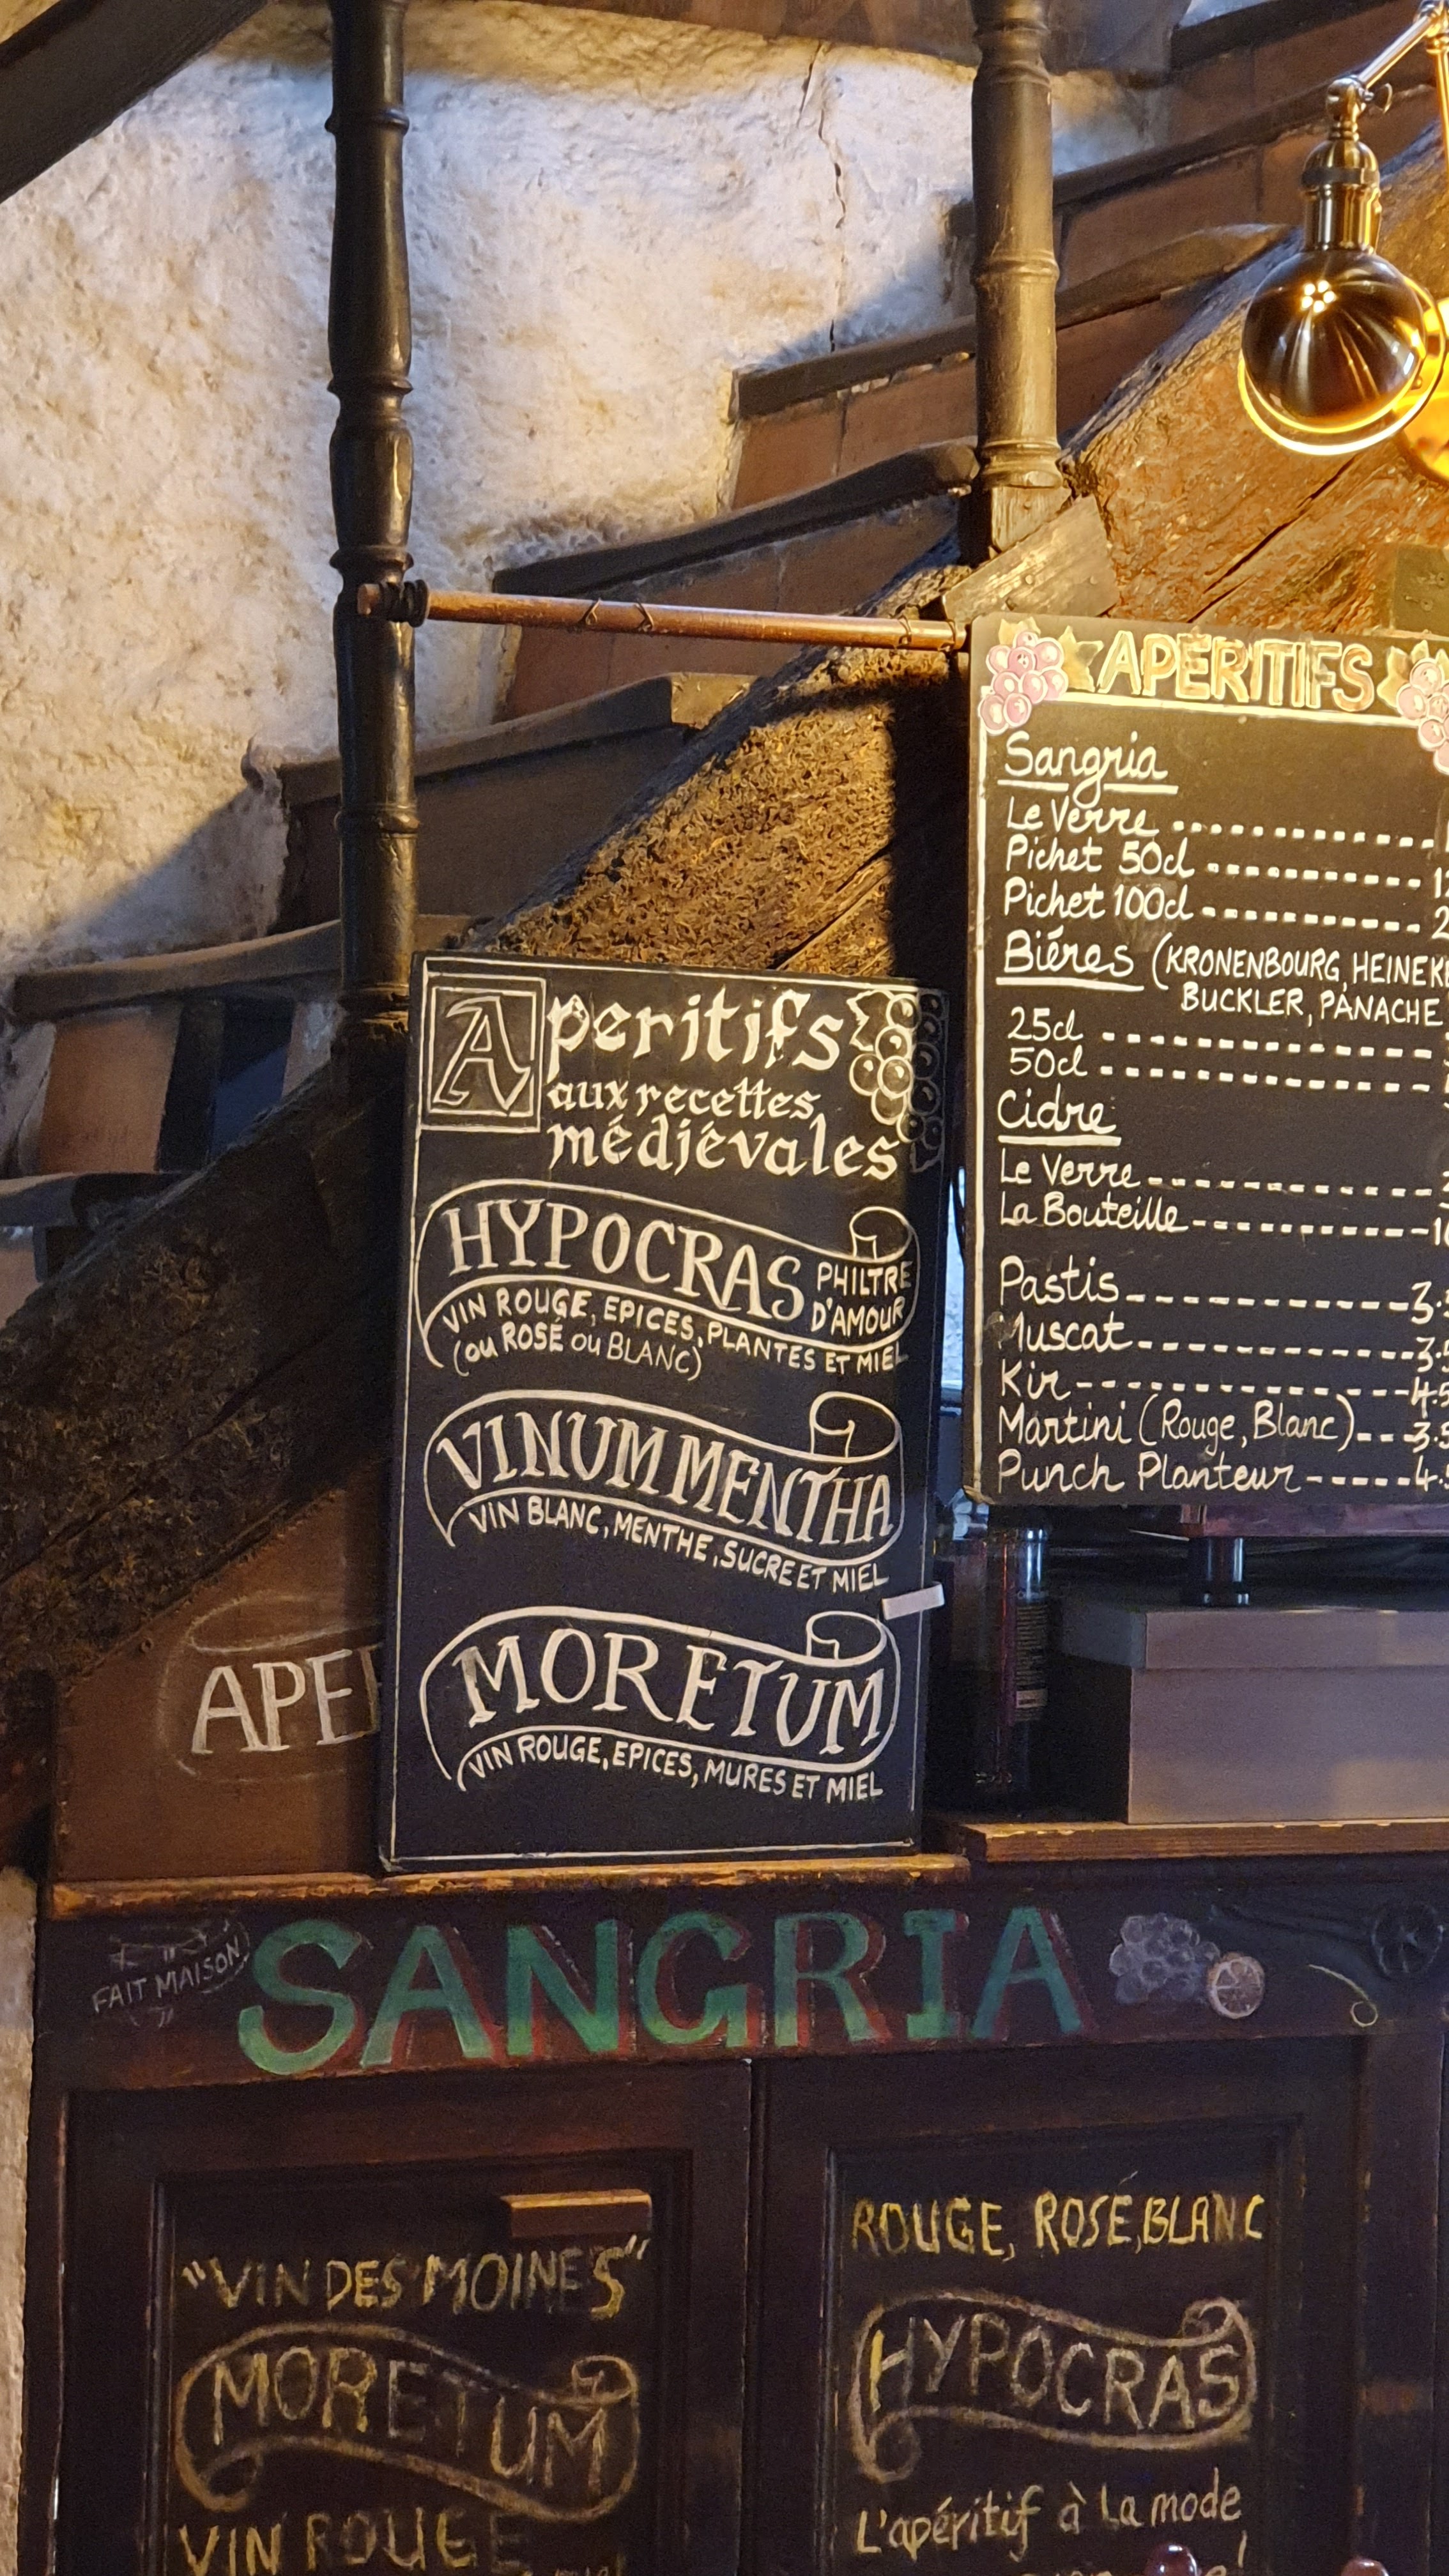 APÉRITIFS
Sangria
Le Verre
Pichet 50cl
Pichet 100cl
Biéres (KRONENBOURG, HEINEKE
BUCKLER, PANACHE
25cl
50cl
Cidre
Le Verre
La Bouteille
Pastis 3.
Muscat 3.5
Kir 4.5
Martini (Rouge, Blanc) 3.5
Punch Planteur 4.
Aperitifs
aux recettes
médiévales
HYPOCRAS PHILTRE D'AMOUR
VIN ROUGE, EPICES, PLANTES ET MIEL
(ou ROSÉ ou BLANC)
VINUM MENTHA
VIN BLANC, MENTHE, SUCRE ET MIEL
MORETUM
VIN ROUGE, EPICES, MURES ET MIEL
APE
FAIT MAISON
SANGRIA
"VIN DES MOINES"
MORETUM
VIN ROUGE
ROUGE, ROSÉ, BLANC
HYPOCRAS
L'apéritif à la mode